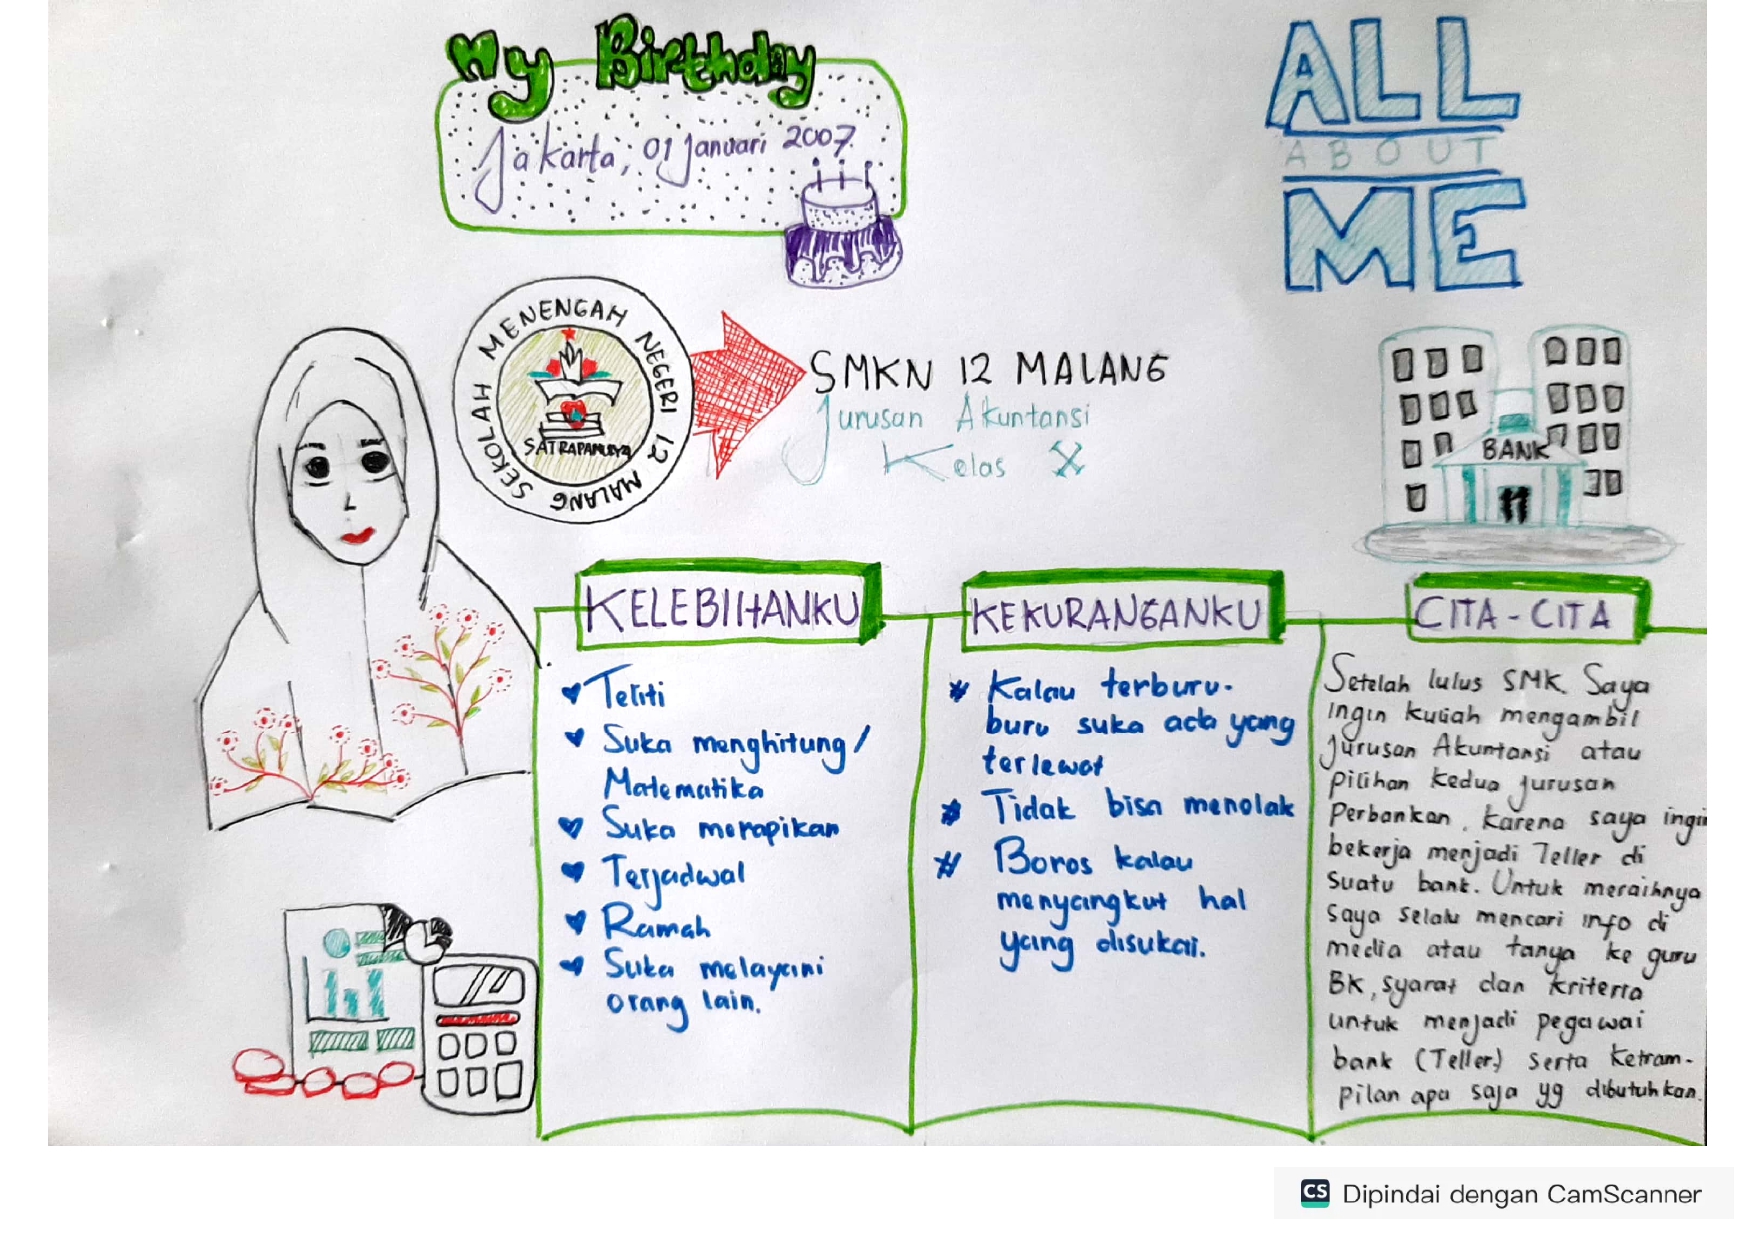 My Birthday
Jakarta, 01 Januari 2007.
ALL
ABOUT
ME
SEKOLAH MENENGAH NEGERI 12 MALANG
SMKN 12 MALANG
Jurusan Akuntansi
Kelas X
BANK
KELEBIHANKU
Teliti
Suka menghitung/
Matematika
Suka merapikan
Terjadwal
Ramah
Suka melayani
orang lain.
KEKURANGANKU
# Kalau terburu-
buru suka ada yang
terlewat
# Tidak bisa menolak
# Boros kalau
menyangkut hal
yang disukai.
CITA-CITA
Setelah lulus SMK. Saya
ingin kuliah mengambil
Jurusan Akuntansi atau
pilihan kedua jurusan
Perbankan, karena saya ingin
bekerja menjadi Teller di
suatu bank. Untuk meraihnya
saya selalu mencari info di
media atau tanya ke guru
BK, syarat dan kriteria
untuk menjadi pegawai
bank (Teller) serta ketram-
pilan apa saja yg dibutuhkan.
CS Dipindai dengan CamScanner